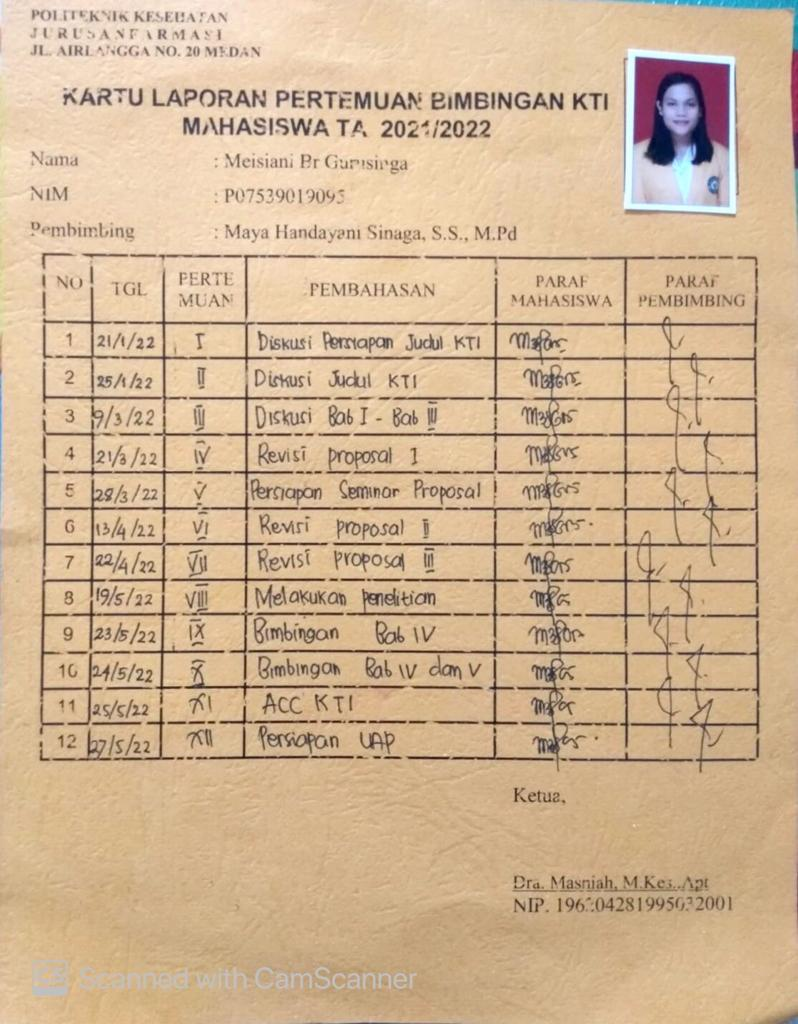 POLITEKNIK KESEHATAN
JURUSAN FARMASI
JL. AIRLANGGA NO. 20 MEDAN
KARTU LAPORAN PERTEMUAN BIMBINGAN KTI
MAHASISWA TA 2021/2022
Nama : Meisiani Br Gurusinga
NIM : P07539019095
Pembimbing : Maya Handayani Sinaga, S.S., M.Pd
NO TGL PERTE MUAN PEMBAHASAN PARAF MAHASISWA PARAF PEMBIMBING
1 21/1/22 I Diskusi Persiapan Judul KTI
2 25/1/22 II Diskusi Judul KTI
3 9/3/22 III Diskusi Bab I - Bab III
4 21/3/22 IV Revisi proposal I
5 28/3/22 V Persiapan Seminar Proposal
6 13/4/22 VI Revisi proposal II
7 22/4/22 VII Revisi proposal III
8 19/5/22 VIII Melakukan penelitian
9 23/5/22 IX Bimbingan Bab IV
10 24/5/22 X Bimbingan Bab IV dan V
11 25/5/22 XI ACC KTI
12 27/5/22 XII Persiapan UAP
Ketua,
Dra. Masniah, M.Kes.,Apt
NIP.
CS Scanned with CamScanner